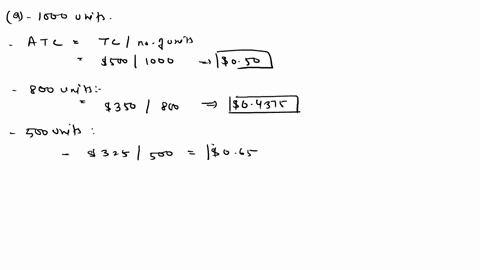 (a) - 1000 units.
- ATC = TC / no. of units
= $500 / 1000 → $0.50
- 800 units:-
= $350 / 800 ⇒ $0.4375
- 500 units:
- $325 / 500 = $0.65